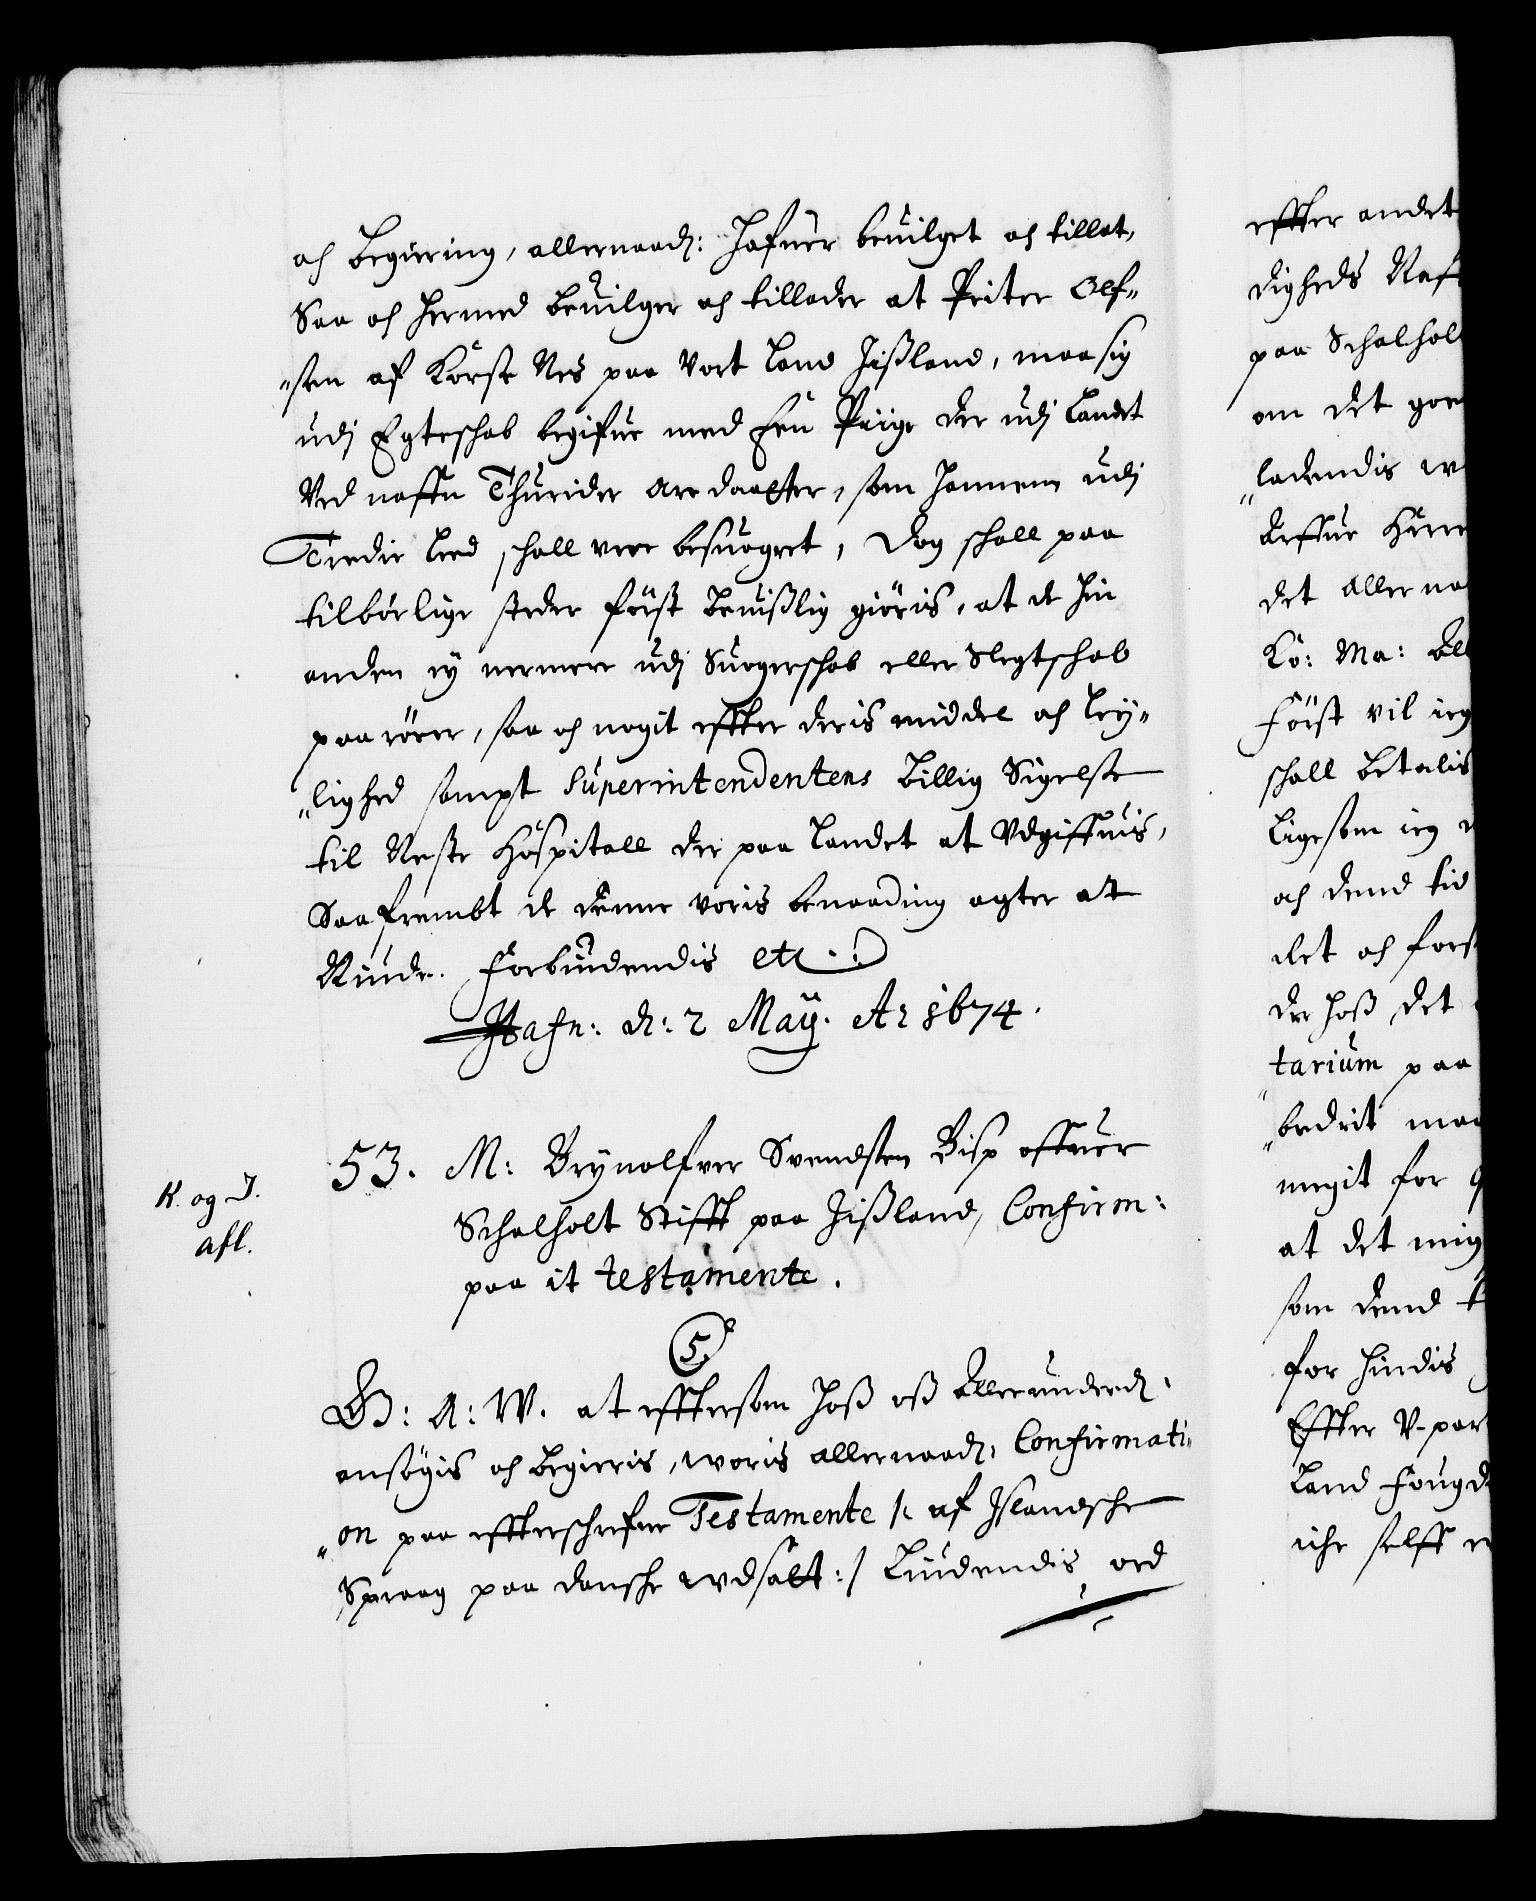 och begiering, allernaad: hafuer beuilget och tillat,
Saa och hermed beuilger och tillader at Peiter Olf„
„sen af Körse Nes paa Vort land Jißland, maa sig
udj Egteschab begifue med Een Pige der udj Landet
Ved naffn Thurider Are daatter, som hannem udj
Tredie leed schall vere besuogret, dog schall paa
tilbörlige steder först beuißlig giöris, at de hin
anden ej nermere udj Suogerschab eller Slegtschab
paarörer, saa och nogit effter deris middel och ley„
„lighed sampt Superintendentens billig Sigelse
til Neste Hospitall der paa Landet at Vdgiffuis,
Saafrembt de denne voris benaading agter at
Niude. Forbiudendis etc.
Hafn: d: 2 Maÿ. Ao 1674.
53. M: Brynolfver Svendsen Bisp offuer
Schalholt Stifft paa Jißland, Confirm:
paa it testamente.
K. og I.
afl.
5.
G: A: W. at efftersom hoß oß Allerunderd:
ansögis och begieris, woris allernaad: Confirmati„
„on paa effterschrefne Testamente /: af Islandsche
Spraag paa dansche wdsatt :/ Liudendis ord
effter andet
digheds Naf
paa Schalhol
om det goe
„ladendis w
det aller na
Ko: Ma: All
Först vil ieg
schall betalis
Ligesom ieg
och dend tid
det och fors
der hoß det
tarium paa
„bedrit maa
megit for
at det mig
som dend t
for hindis
Effter V-par
Land Fougd
iche selff